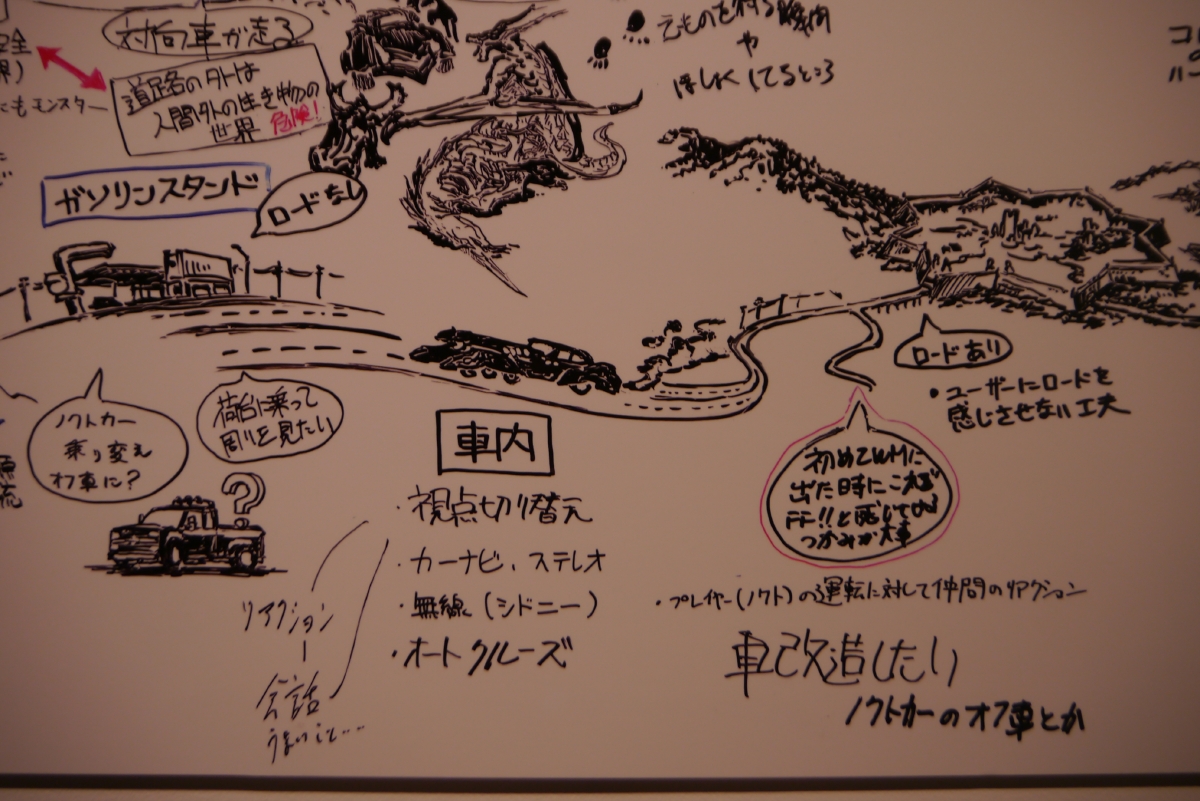 対向車が走る
道路名の外は
人間外の生き物の
世界 危険!
にもモンスター
えものを狩る機内
や
ほしくしてるところ
ガソリンスタンド
ロードなし
ロードあり
・ユーザーにロードを
感じさせない工夫
ノクトカー
乗り変え
オフ車に?
荷台に乗って
周りを見たい
?
車内
・視点切り替え
・カーナビ、ステレオ
・無線(シドニー)
・オートクルーズ
リアクション
会話
初めてWMに
出た時にこれぞ
FF!!と感じての
つかみが大事
・プレイヤー(ノクト)の運転に対して仲間のリアクション
車改造したい
ノクトカーのオフ車とか